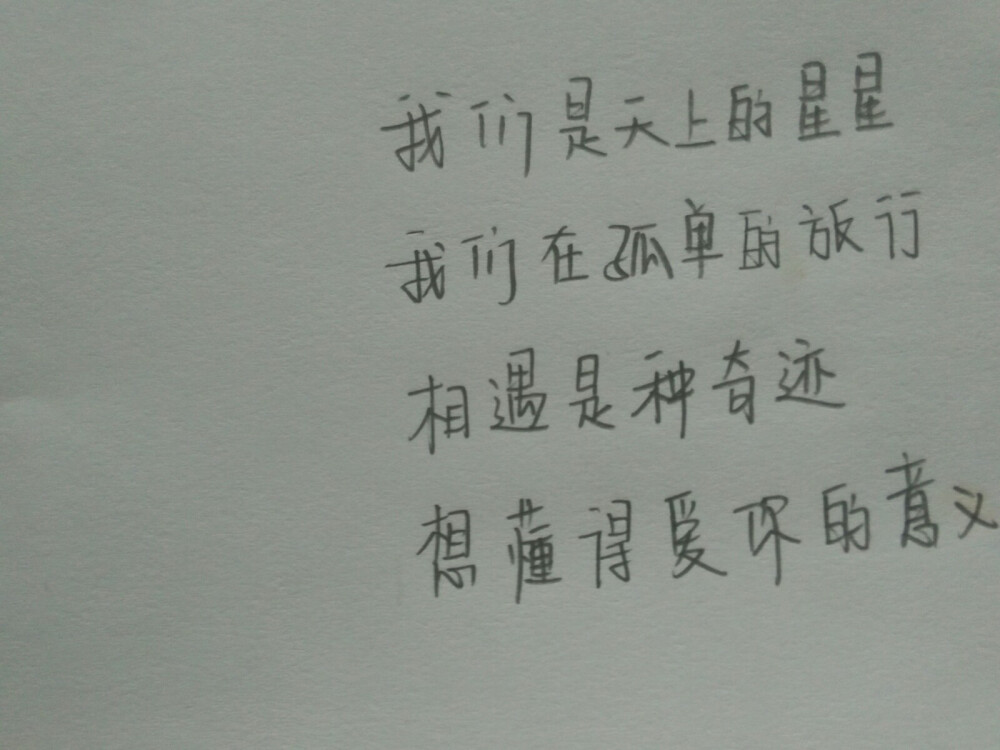 我们是天上的星星
我们在孤单的旅行
相遇是种奇迹
想懂得爱你的意义